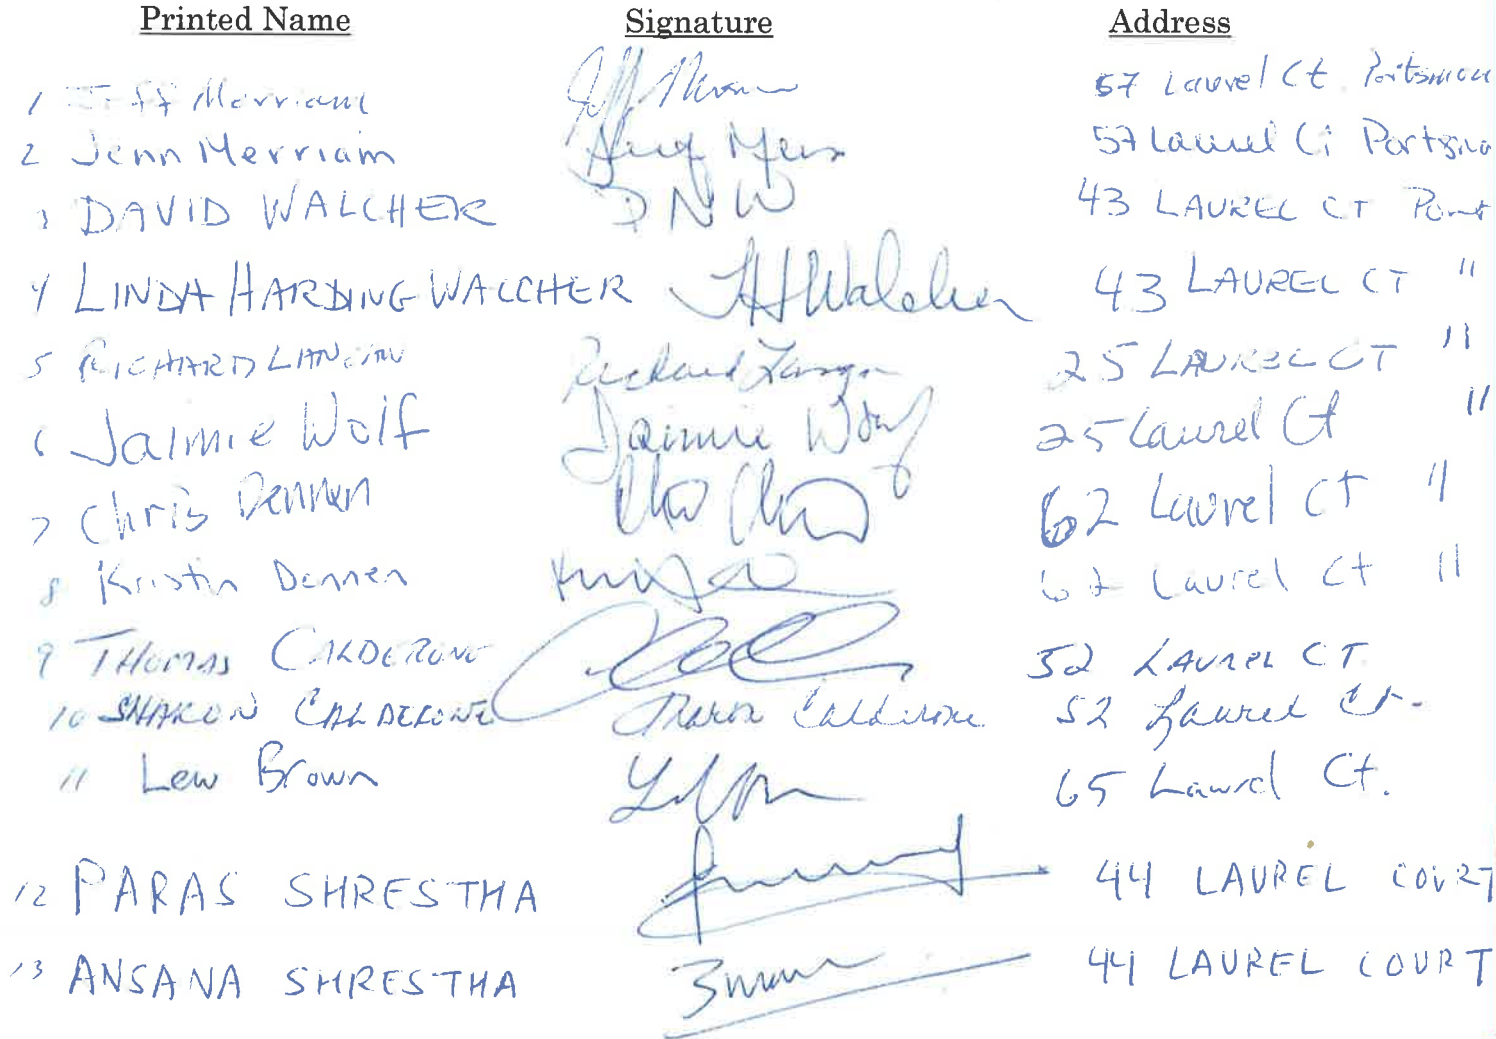 Printed Name Signature Address
1 Jeff Merriam 57 Laurel Ct. Portsmou
2 Jenn Merriam 57 Laurel Ct Portsmo
3 DAVID WALCHER DNW 43 LAUREL CT
4 LINDA HARDING WALCHER LHWalcher 43 LAUREL CT "
5 RICHARD 25 LAUREL CT "
6 Jaimie Wolf Jaimie Wolf 25 Laurel Ct "
7 Chris Dennen 62 Laurel CT "
8 Kristin Dennen 62 Laurel Ct "
9 THOMAS CALDERONE 52 LAUREL CT
10 SHARON CALDERONE Sharon Calderone 52 Laurel Ct.
11 Lew Brown 65 Laurel Ct.
12 PARAS SHRESTHA 44 LAUREL COURT
13 ANSANA SHRESTHA 44 LAUREL COURT